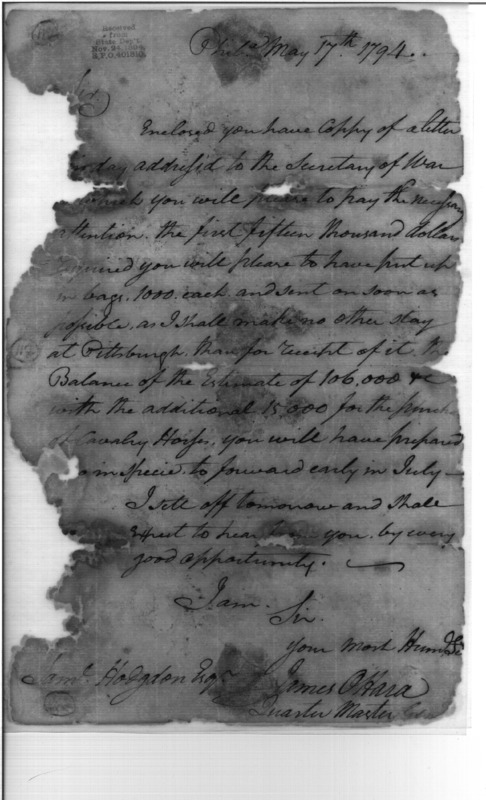 Received
from
State Dep't.
Nov. 24, 1894,
R.P.O. 401810.
Phila. May 17th. 1794.
Sir
Enclosed you have Coppy of a letter
today address'd to the Secretary of War
which you will please to pay the necessary
attention. the first fifteen thousand dollars
required you will please to have put up
in bags. 1000. each. and sent on soon as
possible, as I shall make no other stay
at Pittsburgh. than for receipt of it. the
Balance of the Estimate of 106,000 &c
with the additional 15.000 for the purch
of Cavalry Horses. you will have prepared
in specie. to forward early in July —
I sett off tomorrow and shall
expect to hear from you. by every
good opportunity.
I am.
Sir.
your most Humble
Saml. Hodgdon Esqr
James O'Hara
Quarter Master